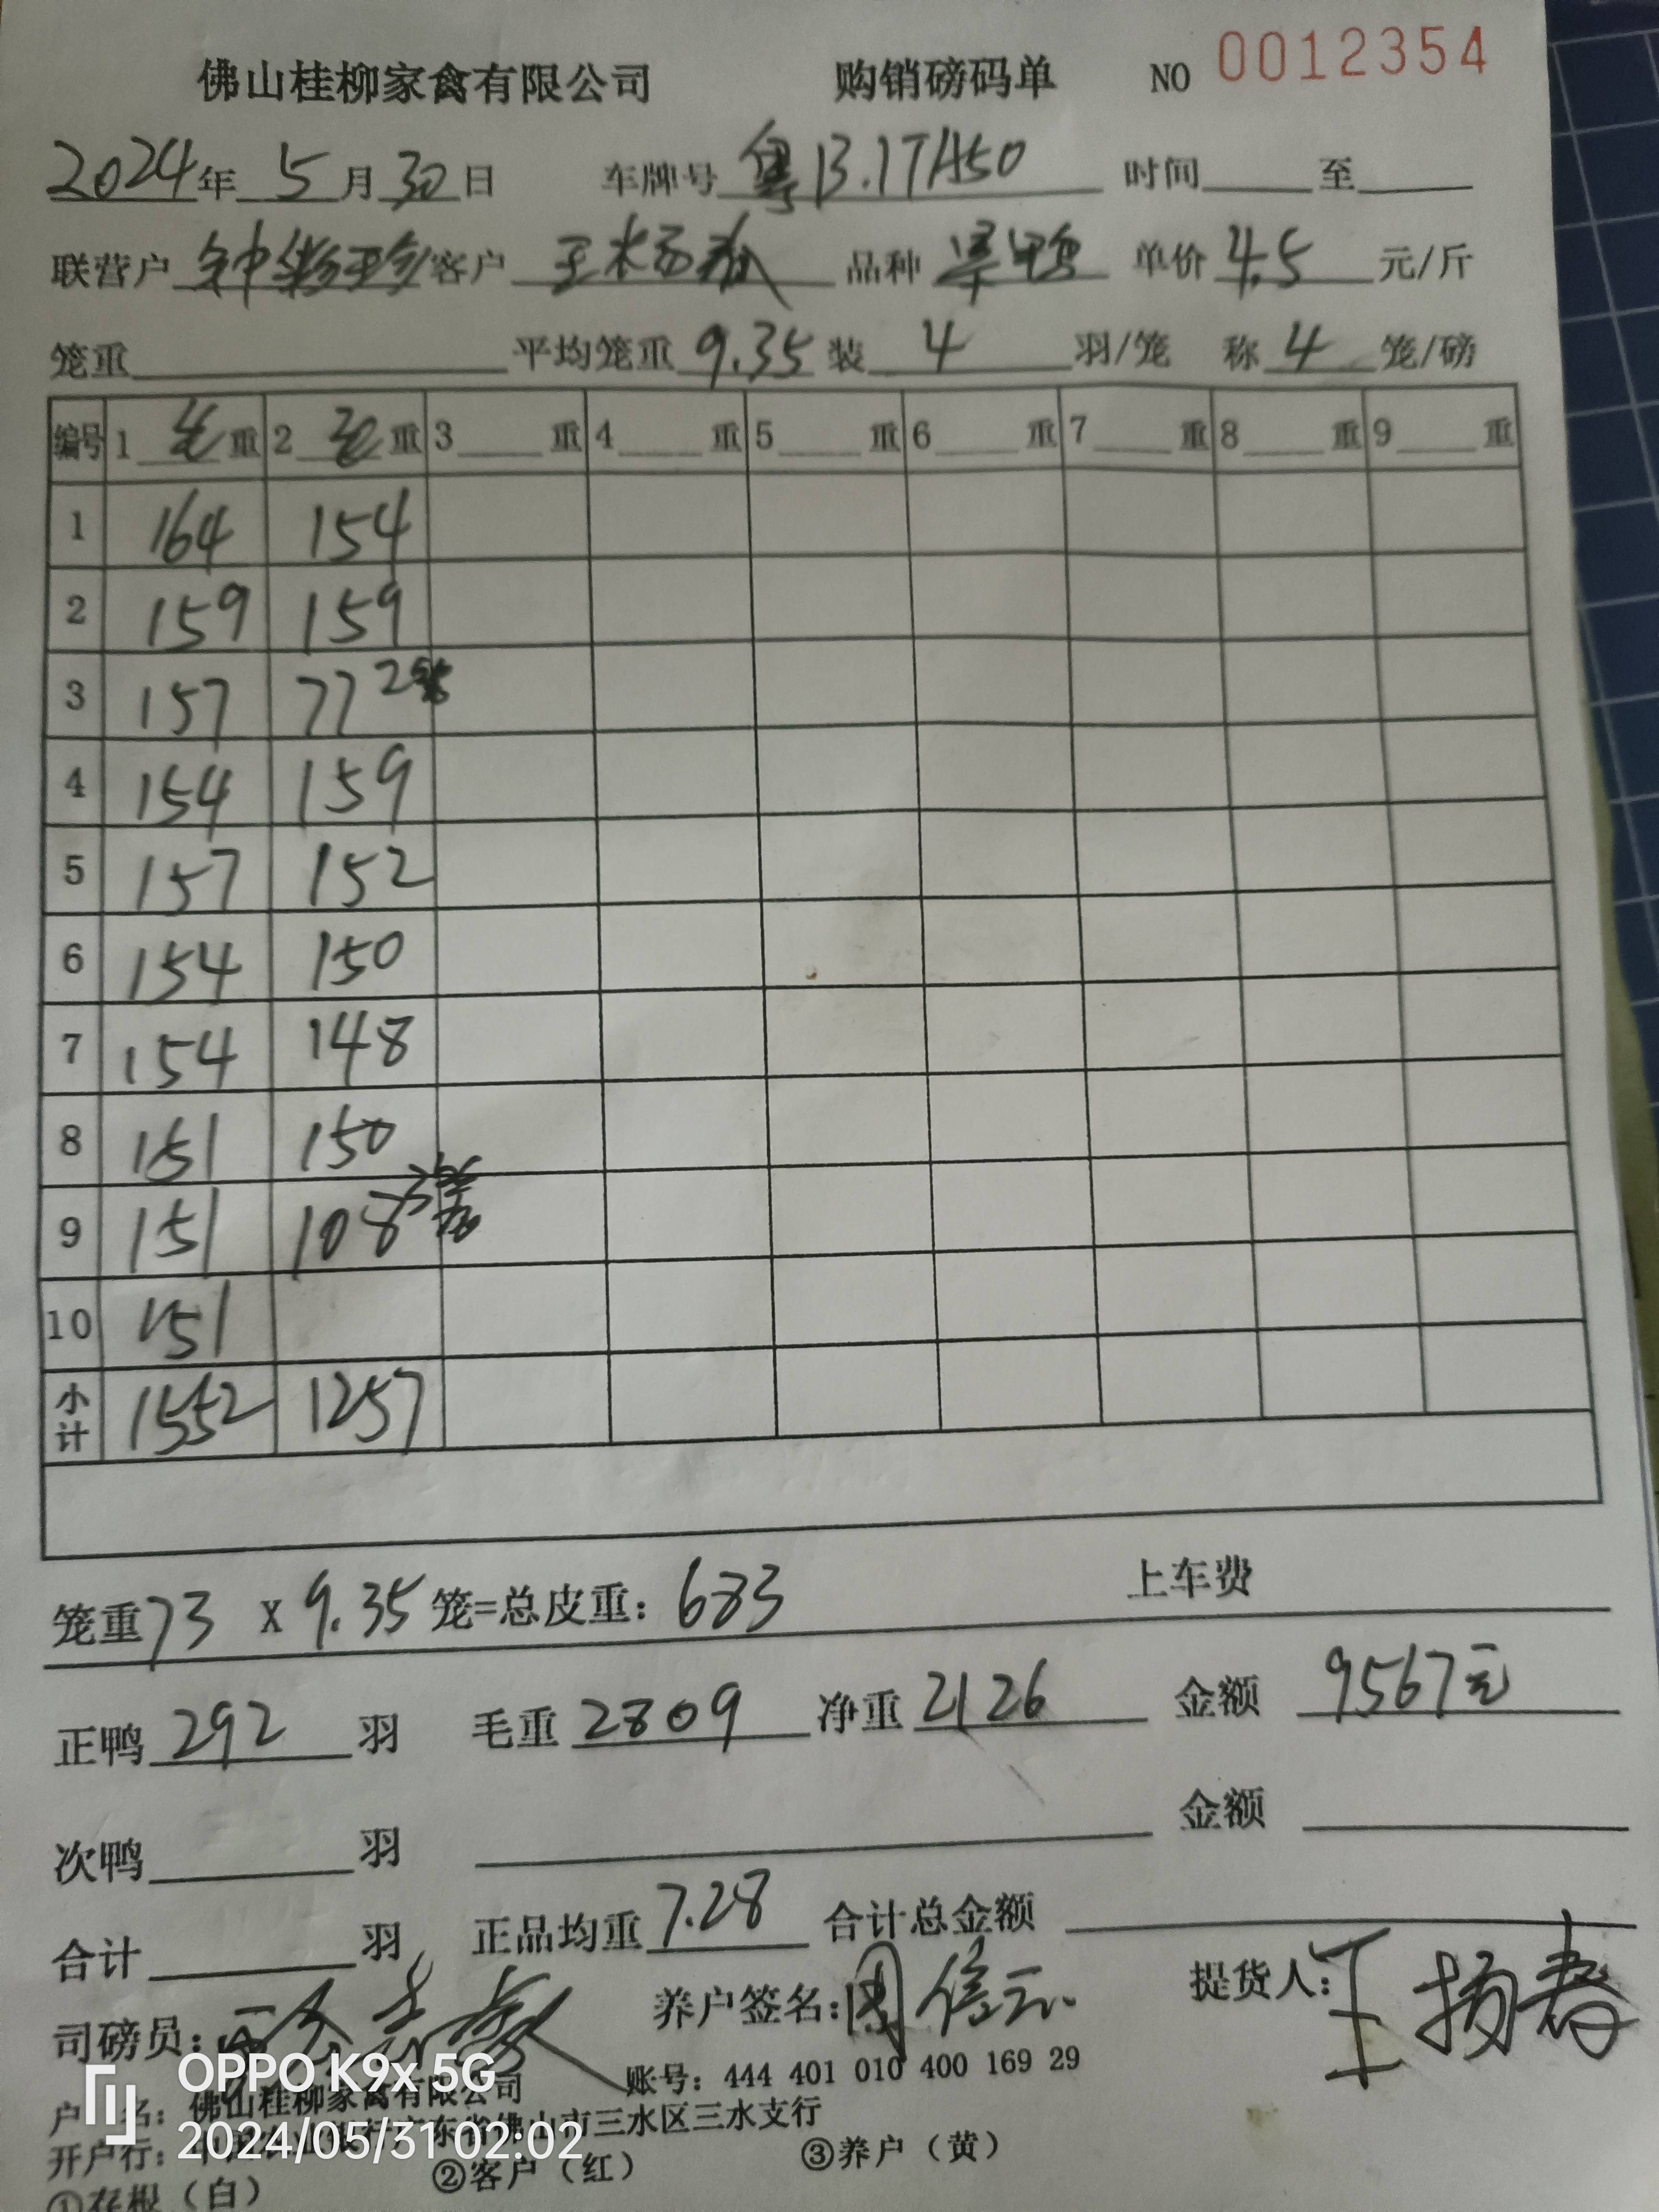 佛山桂柳家禽有限公司 购销磅码单 NO 0012354
2024年 5 月 30 日 车牌号 粤B.17A50 时间 至
联营户 钟 珍 客户 王 品种 鸭 单价 4.5 元/斤
笼重 平均笼重 9.35 装 4 羽/笼 称 4 笼/磅
编号 1 毛 重 2 毛 重 3 重 4 重 5 重 6 重 7 重 8 重 9 重
1 164 154
2 159 159
3 157 77 2笼
4 154 159
5 157 152
6 154 150
7 154 148
8 151 150
9 151 108
10 151
小计 1552 1257
笼重 73 X 9.35 笼=总皮重: 683 上车费
正鸭 292 羽 毛重 2809 净重 2126 金额 9567元
次鸭 羽 金额
合计 羽 正品均重 7.28 合计总金额
司磅员: 养户签名: 周信 提货人: 王扬春
户 名: 佛山桂柳家禽有限公司 账号: 444 401 010 400 169 29
开户行: 东省佛山市三水区三水支行
①存根（白） ②客户（红） ③养户（黄）
OPPO K9x 5G
2024/05/31 02:02